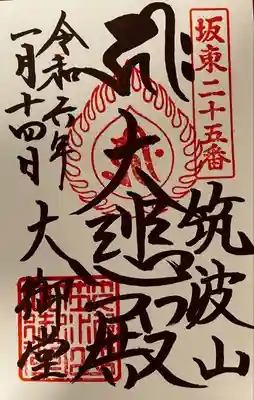 坂東二十五番
筑波山
大悲殿
大御堂
令和六年
一月十四日